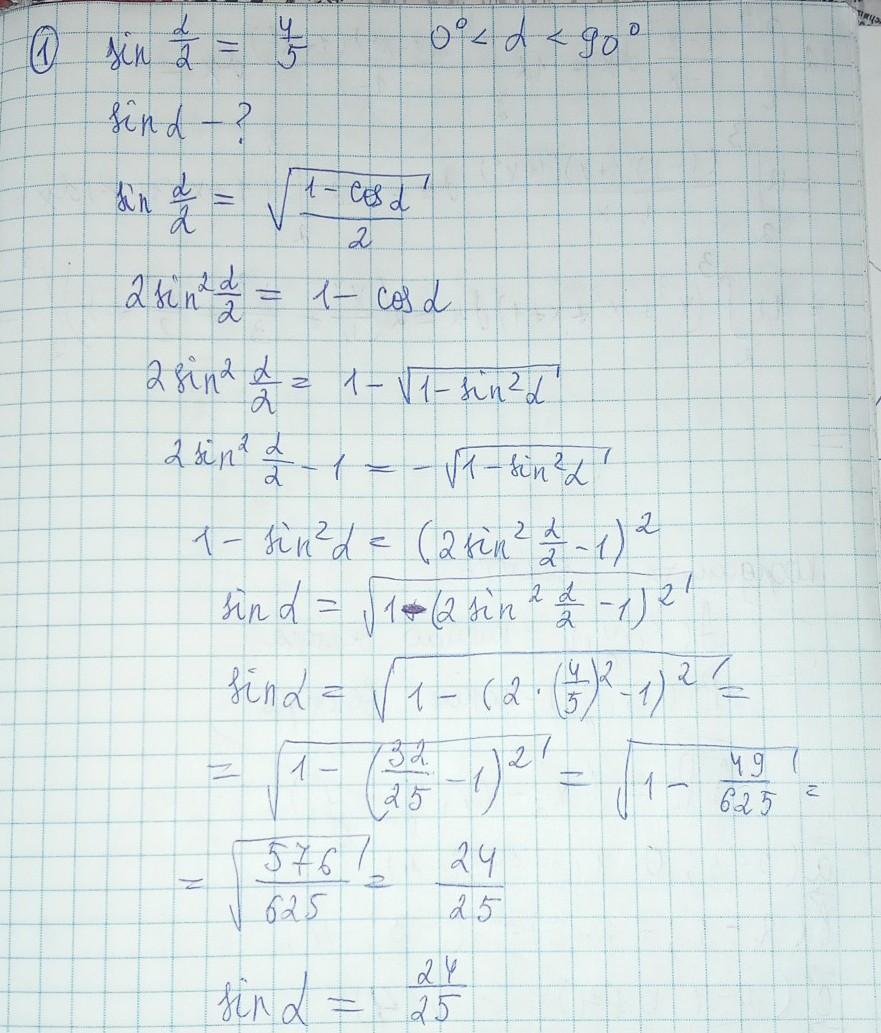 ① sin α/2 = 4/5 0° < α < 90°
sin α – ?
sin α/2 = √((1 - cos α)/2)
2 sin² α/2 = 1 - cos α
2 sin² α/2 = 1 - √(1 - sin² α)
2 sin² α/2 - 1 = - √(1 - sin² α)
1 - sin² α = (2 sin² α/2 - 1)²
sin α = √(1 - (2 sin² α/2 - 1)²)
sin α = √(1 - (2 · (4/5)² - 1)²) =
= √(1 - (32/25 - 1)²) = √(1 - 49/625) =
= √(576/625) = 24/25
sin α = 24/25